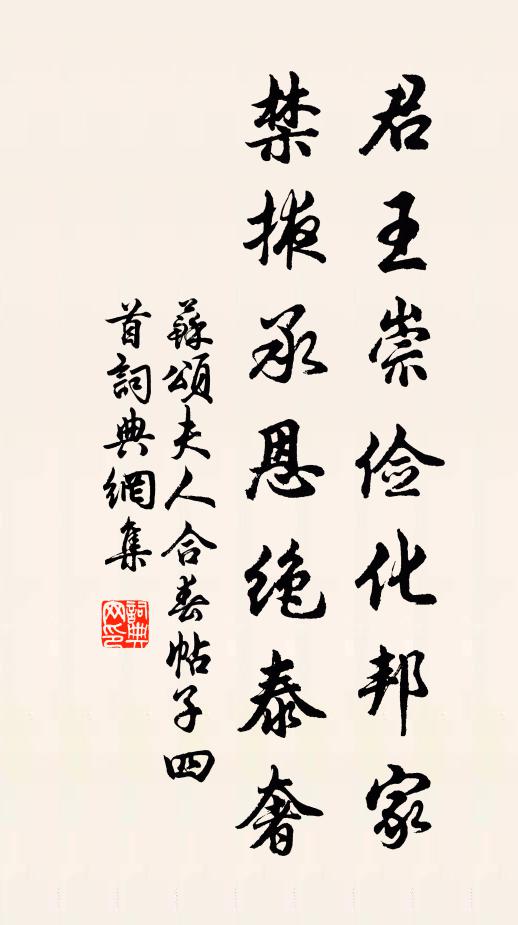 君王崇俭化邦家
禁掖承恩绝泰奢
蘇頌夫人合春帖子四
首詞典網集
詞典网印